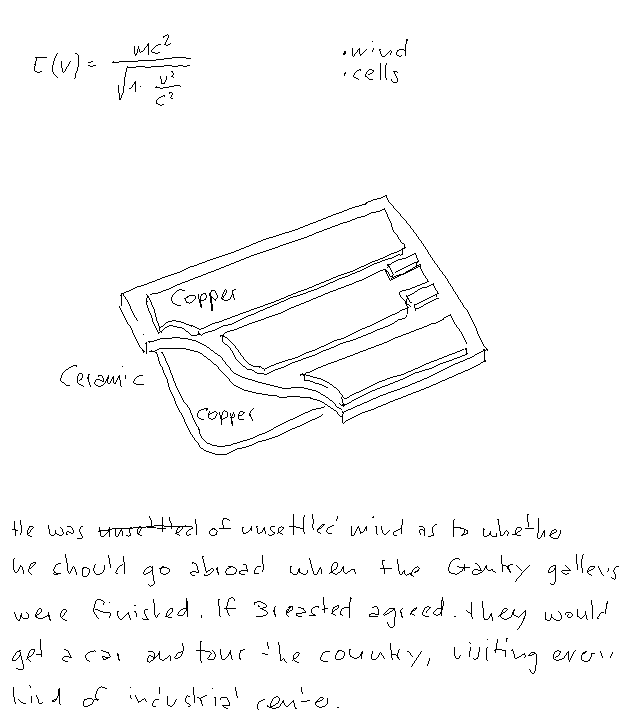 E(v) = mc² / √1 - v²/c²
· wind
· cells
Copper
Ceramic
Copper
He was unsettled of unsettled mind as to whether
he should go abroad when the Gantry gallerys
were finished. If Breasted agreed. they would
get a car and tour the country, visiting every
kind of industrial centre.